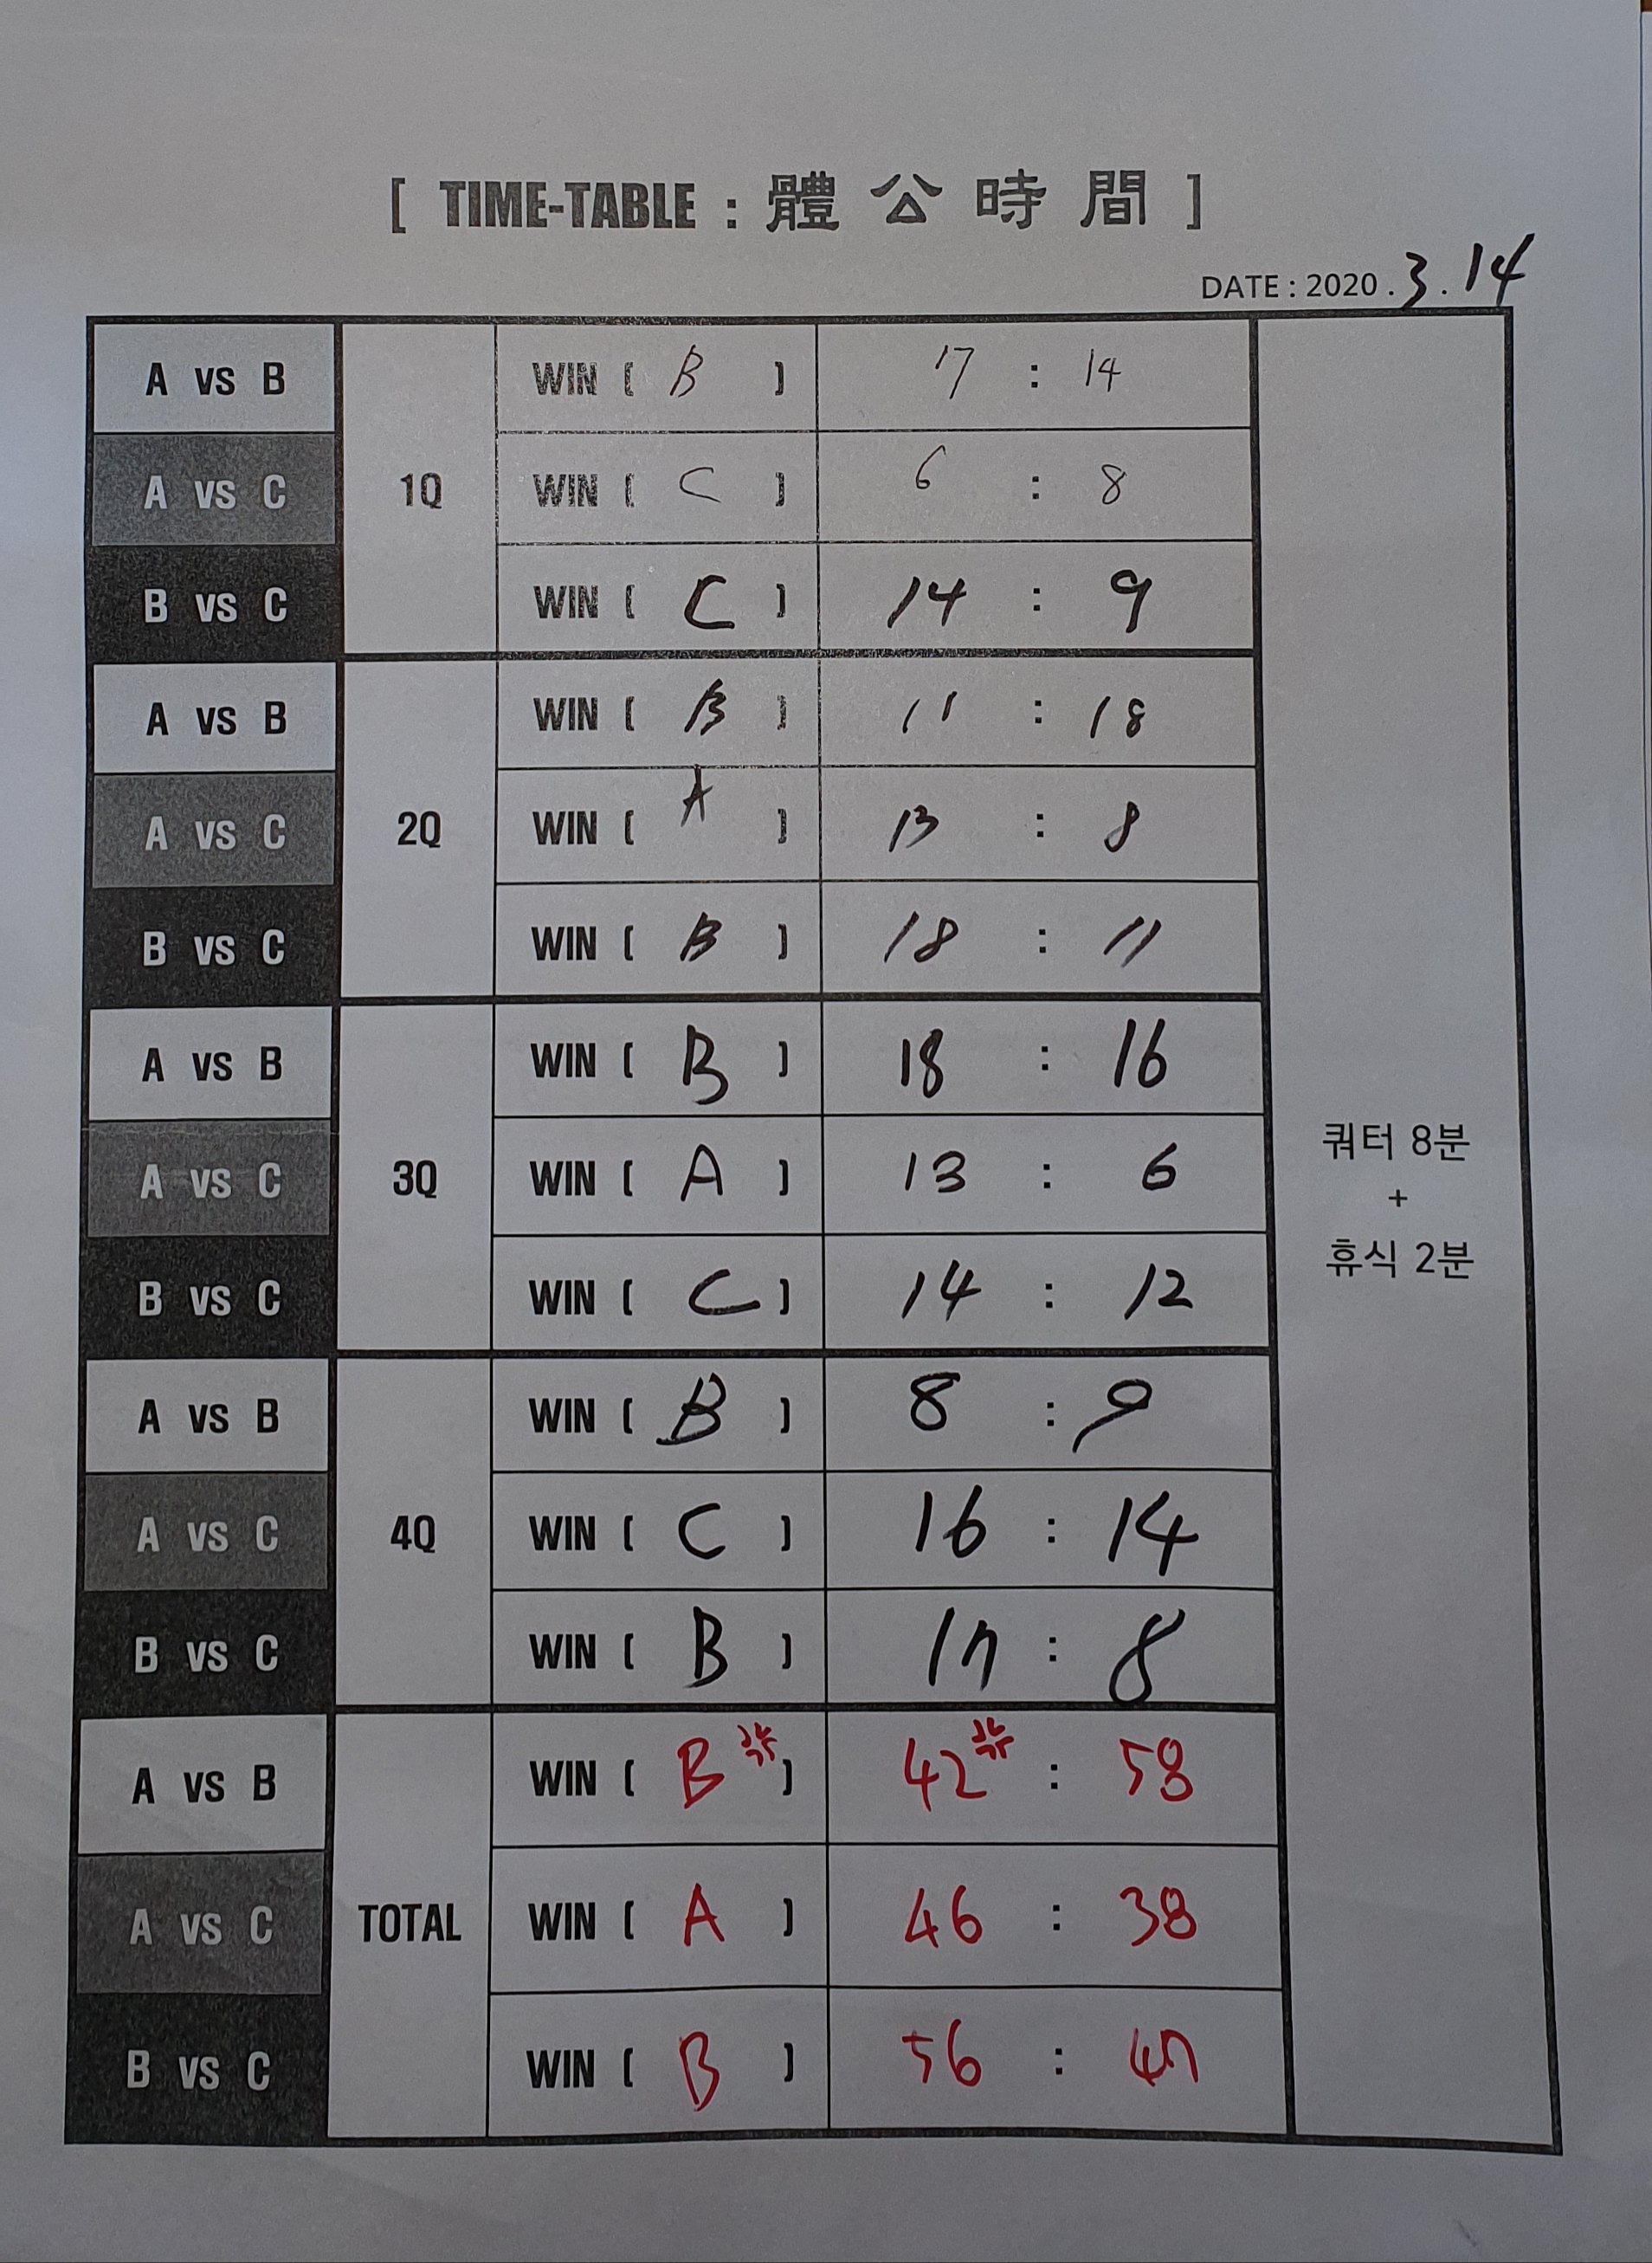 [ TIME-TABLE : 體公時間 ]
DATE : 2020 . 3 . 14
A vs B WIN ( B ) 17 : 14
A vs C 1Q WIN ( C ) 6 : 8
B vs C WIN ( C ) 14 : 9
A vs B WIN ( B ) 11 : 18
A vs C 2Q WIN ( A ) 13 : 8
B vs C WIN ( B ) 18 : 11
A vs B WIN ( B ) 18 : 16
쿼터 8분
+
휴식 2분
A vs C 3Q WIN ( A ) 13 : 6
B vs C WIN ( C ) 14 : 12
A vs B WIN ( B ) 8 : 9
A vs C 4Q WIN ( C ) 16 : 14
B vs C WIN ( B ) 17 : 8
A vs B WIN ( B ) 42 : 58
A vs C TOTAL WIN ( A ) 46 : 38
B vs C WIN ( B ) 56 : 47